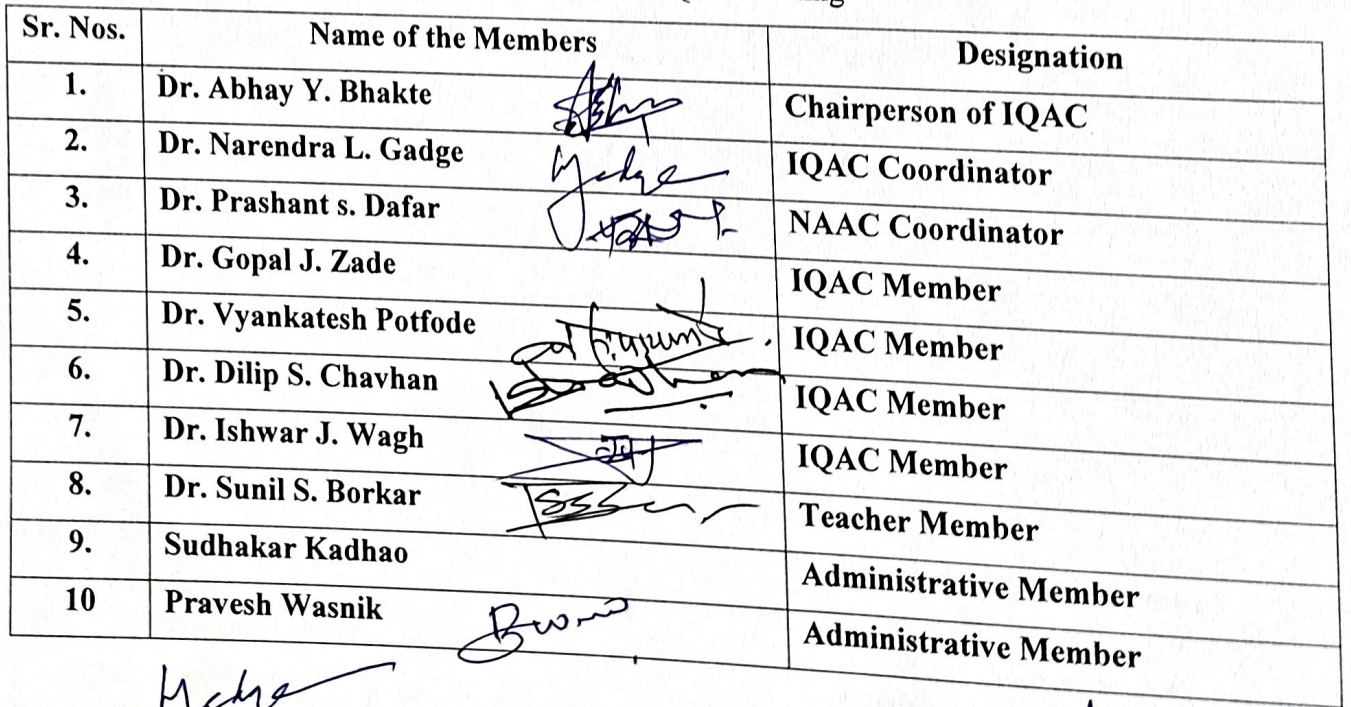 Sr. Nos. Name of the Members Designation
1. Dr. Abhay Y. Bhakte Chairperson of IQAC
2. Dr. Narendra L. Gadge IQAC Coordinator
3. Dr. Prashant s. Dafar NAAC Coordinator
4. Dr. Gopal J. Zade IQAC Member
5. Dr. Vyankatesh Potfode IQAC Member
6. Dr. Dilip S. Chavhan IQAC Member
7. Dr. Ishwar J. Wagh IQAC Member
8. Dr. Sunil S. Borkar Teacher Member
9. Sudhakar Kadhao Administrative Member
10 Pravesh Wasnik Administrative Member